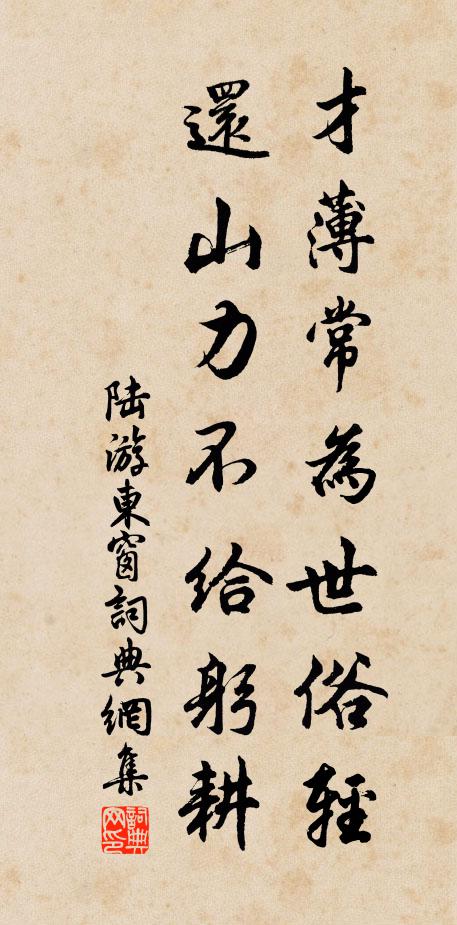 才薄常為世俗輕
還山力不給躬耕
陆游東窗詞典網集
詞典网印